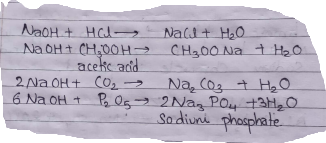 NaOH + HCl → NaCl + H₂O
NaOH + CH₃OOH → CH₃OO Na + H₂O
acetic acid
2 NaOH + CO₂ → Na₂ CO₃ + H₂O
6 NaOH + P₂O₅ → 2Na₃ PO₄ +3H₂O
Sodium phosphate